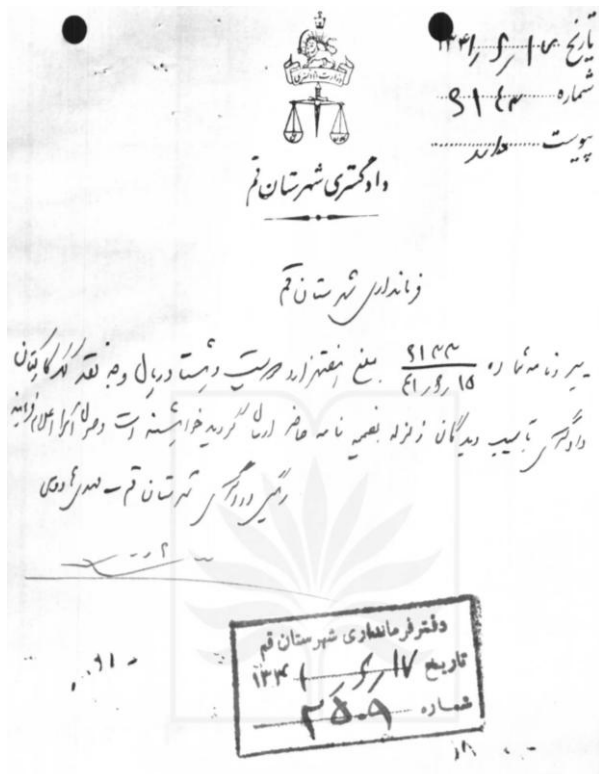 تاریخ ۱۳۴۱
شماره
پیوست دارد
وزارت دادگستری
دادگستری شهرستان قم
فرمانداری شهرستان قم
پیرو نامه شماره ۶۱۳۳ مبلغ هفتهزار و دویست و هشتاد ریال وجه نقد کارکنان
۴۱/۶/۱۵
دادگستری به آسیب دیدگان زلزله بضمیمه نامه حاضر ارسال گردید خواهشمند است وصول آنرا اعلام فرمایید
رئیس دادگستری شهرستان قم
دفتر فرمانداری شهرستان قم
تاریخ ۱۷/۶/۱۳۴۱
شماره ۳۵۰۹